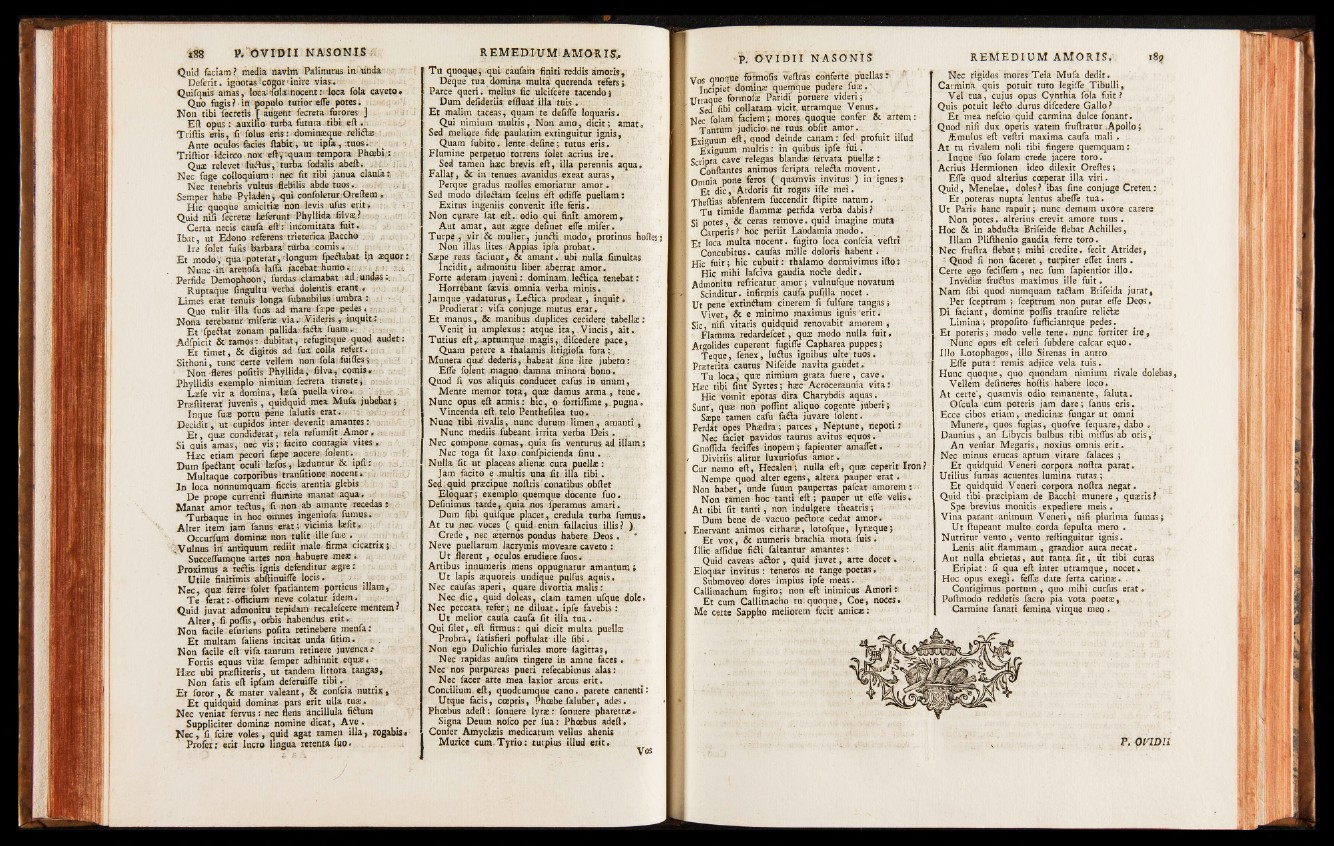 188 P. OVIDII NASONIS
Quid faciam? media navim Palinurus in unda
Deserit. ignotas cogor inire vias.
Quisquis amas, loca sola nocent: loca sola caveto.
Quo fugis? in populo tutior esse potes.
Non tibi secretis [ augent secreta furores ]
Est opus: auxilio turba futura tibi est.
Tristis eris, si solus eris: dominæque relictæ
Ante oculos facies stabit, ut ipsa, tuos.
Tristior idcirco nox est, quam tempora Phœbi:
Quæ relevet luctus, turba sodalis abest.
Nec fuge colloquium: nec sit tibi janua clausa:
Nec tenebris vultus flebilis abde tuos.
Semper habe Pyladen, qui consoletur Orestem.
Hic quoque amicitiæ non levis usus erit.
Quid nisi secretæ læserunt Phyllida silvæ?
Certa necis causa est: incomitata fuit.
Ibat, ut Edono referens trieterica Baccho
Ire solet fusis barbara turba comis.
Et modo, qua poterat, longum spectabat in æquor:
Nunc in arenosa lassa jacebat humo.
Perfide Demophoon, surdas clamabat ad undas:
Ruptaque singultu verba dolentis erant.
Limes erat tenuis longa subnubilus umbra:
Quo tulit illa suos ad mare sæpe pedes.
Nona terebatur miseræ via. Videris, inquit:
Et spectat zonam pallida facta suam.
Adspicit & ramos: dubitat, refugitque quod audet:
Et timet, & digitos ad sua colla refert.
Sithoni, tunc certe vellem non sola fuisses:
Non fleres positis Phyllida, silva, comis.
Phyllidis exemplo nimium secreta timete,
Læse vir a domina, læsa puella viro.
Præstiterat juvenis, quidquid mea Musa jubebat;
Inque suæ portu pene salutis erat.
Decidit, ut cupidos inter devenit amantes:
Et, quæ condiderat, tela resumsit Amor.
Si quis amas, nec vis; facito contagia vites.
Hæc etiam pecori sæpe nocere solent.
Dum spectant oculi læsos, læduntur & ipsi:
Multaque corporibus transitione nocent.
In loca nonnumquam siccis arentia glebis
De prope currenti flumine manat aqua.
Manat amor tectus, si non ab amante recedas:
Turbaque in hoc omnes ingeniosa sumus.
Alter item jam sanus erat; vicinia læsit.
Occursum dominæ non tulit ille suæ.
Vulnus in antiquum rediit male firma cicatrix;
Successumque artes non habuere meæ.
Proximus a tectis ignis defenditur ægre:
Utile finitimis abstinuisse locis.
Nec, quæ ferre solet spatiantem porticus illam,
Te ferat: officium neve colatur idem.
Quid juvat admonitu tepidam recalescere mentem?
Alter, si possis, orbis habendus erit.
Non facile esuriens posita retinebere mensa:
Et multam saliens incitat unda sitim.
Non facile est visa taurum retinere juvenca:
Fortis equus visæ semper adhinnit equæ.
Hæc ubi præstiteris, ut tandem littora tangas,
Non satis est ipsam deseruisse tibi.
Et soror, & mater valeant, & conscia nutrix,
Et quidquid dominæ pars erit ulla tuæ.
Nec veniat servus: nec flens ancillula fictum
Suppliciter dominæ nomine dicat, Ave.
Nec, si scire voles, quid agat tamen illa, rogabis.
Profer: erit lucro lingua retenta suo.
REMEDIUM AMORIS.
Tu quoque, qui causam finiti reddis amoris,
Deque tua domina multa querenda refers;
Parce queri. melius sic ulciscere tacendo;
Dum desideriis effluat illa tuis.
Et malim taceas, quam te desisse loquaris.
Qui nimium multis, Non amo, dicit; amat.
Sed meliore fide paulatim extinguitur ignis,
Quam subito. lente desine; tutus eris.
Flumine perpetuo torrens solet acrius ire.
Sed tamen hæc brevis est, illa perennis aqua.
Fallat, & in tenues avanidus exeat auras,
Perque gradus molles emoriatur amor.
Sed modo dilectam scelus est odisse puellam:
Exitus ingeniis convenit iste feris.
Non curare sat est. odio qui finit amorem,
Aut amat, aut ægre desinet esse miser.
Turpe, vir & mulier, juncti modo, protinus hostes;
Non illas lites Appias ipsa probat.
Sæpe reas faciunt, & amant. ubi nulla simultas
Incidit, admonitu liber aberrat amor.
Forte aderam juveni: dominam lectica tenebat:
Horrebant sævis omnia verba minis.
Jamque vadaturus, Lectica prodeat, inquit.
Prodierat: visa conjuge mutus erat.
Et manus, & manibus duplices cecidere tabellæ:
Venit in amplexus: atque ita, Vincis, ait.
Tutius est, aptumque magis, discedere pace,
Quam petere a thalamis litigiosa fora:
Munera quæ dederis, habeat sine lite jubeto:
Esse solent magno damna minora bono.
Quod si vos aliquis conducet casus in unum,
Mente memor tota, quæ damus arma, tene.
Nunc opus est armis: hic, o fortissime, pugna.
Vincenda est telo Penthesilea tuo.
Nunc tibi rivalis, nunc durum limen, amanti,
Nunc mediis subeant irrita verba Deis.
Nec compone comas, quia sis venturus ad illam:
Nec toga sit laxo conspicienda sinu.
Nulla sit ut placeas alienæ cura puellæ:
Jam facito e multis una sit illa tibi.
Sed quid præcipue nostris conatibus obstet
Eloquar; exemplo quemque docente suo.
Desinimus tarde, quia nos speramus amari.
Dum sibi quisque placet, credula turba sumus.
At tu nec voces ( quid enim fallacius illis? )
Crede, nec æternos pondus habere Deos.
Neve puellarum lacrymis moveare caveto:
Ut flerent, oculos erudiere suos.
Artibus innumeris mens oppugnatur amantum;
Ut lapis æquoreis undique pulsus aquis.
Nec causas aperi, quare divortia malis:
Nec dic, quid doleas, clam tamen usque dole.
Nec peccata refer; ne diluat. ipse favebis:
Ut melior causa causa sit illa tua.
Qui silet, est firmus: qui dicit multa puellæ
Probra, satisfieri postulat ille sibi.
Non ego Dulichio furiales more sagittas,
Nec rapidas ausim tingere in amne faces.
Nec nos purpureas pueri resecabimus alas:
Nec sacer arte mea laxior arcus erit.
Concilium est, quodcumque cano. parete canenti:
Utque facis, cœpris, Phœbe saluber, ades.
Phœbus adest: sonuere lyræ: sonuere pharetræ.
Signa Deum nosco per sua: Phœbus adest.
Confer Amyclæis medicatum vellus ahenis
Murice cum Tyrio: turpius illud erit.
Vos
P. OVIDII NASONIS
Vos quoque formosis vestras conferte puellas:
Incipiet dominæ quemque pudere suæ.
Utraque formosæ Paridi potuere videri;
Sed sibi collatam vicit utramque Venus.
Nec solam faciem; mores quoque confer & artem:
Tantum judicio ne tuus obsit amor.
Exiguum est, quod deinde canam: sed profuit illud
Exiguum multis: in quibus ipse fui.
Scripta cave relegas blandæ servata puellæ:
Constantes animos scripta relecta movent.
Omnia pone feros ( quamvis invitus ) in ignes:
Et dic, Ardoris sit rogus iste mei.
Thestias absentem succendit stipite natum.
Tu timide flammæ perfida verba dabis?
Si potes, & ceras remove. quid imagine muta
Carperis? hoc periit Laodamia modo.
Et loca multa nocent. fugito loca conscia vestri
Concubitus. causas mille doloris habent.
Hic fuit; hic cubuit: thalamo dormivimus isto:
Hic mihi lasciva gaudia nocte dedit.
Admonitu refricatur amor; vulnusque novatum
Scinditur. infirmis causa pusilla nocet.
Ut pene extinctum cinerem si sulfure tangas;
Vivet, & e minimo maximus ignis erit.
Sic, nisi vitaris quidquid renovabit amorem,
Flamma redardescet, quæ modo nulla fuit.
Argolides cuperent fugisse Capharea puppes;
Teque, senex, luctus ignibus ulte tuos.
Præterita cautus Niseide navita gaudet.
Tu loca, quæ nimium grata fuere, cave.
Hæc tibi sint Syrtes; hæc Acroceraunia vita:
Hic vomit epotas dira Charybdis aquas.
Sunt, quæ non possint aliquo cogente juberi;
Sæpe tamen casu facta juvare solent.
Perdat opes Phædra; parces, Neptune, nepoti:
Nec faciet pavidos taurus avitus equos.
Gnossida fecisses inopem; sapienter amasset.
Divitiis alitur luxuriosus amor.
Cur nemo est, Hecalen; nulla est, quæ ceperit Iron?
Nempe quod alter egens, altera pauper erat.
Non habet, unde suum paupertas pascat amorem:
Non tamen hoc tanti est; pauper ut esse velis.
At tibi sit tanti, non indulgere theatris;
Dum bene de vacuo pectore cedat amor.
Enervant animos citharæ, lotosque, lyræque;
Et vox, & numeris brachia mota suis.
Illic assidue ficti saltantur amantes:
Quid caveas actor, quid juvet, arte docet.
Eloquar invitus: teneros ne tange poetas.
Submoveo dotes impius ipse meas.
Callimachum fugito; non est inimicus Amori:
Et cum Callimacho tu quoque, Coe, noces.
Me certe Sappho meliorem fecit amicæ:
REMEDIUM AMORIS. 189
Nec rigidos mores Teia Musa dedit.
Carmina quis potuit tuto legisse Tibulli,
Vel tua, cujus opus Cynthia sola fuit?
Quis potuit lecto durus discedere Gallo?
Et mea nescio quid carmina dulce sonant.
Quod nisi dux operis vatem frustratur Apollo;
Æmulus est vestri maxima causa mali.
At tu rivalem noli tibi fingere quemquam:
Inque suo solam crede jacere toro.
Acrius Hermionen ideo dilexit Orestes;
Esse quod alterius cœperat illa viri.
Quid, Menelae, doles? ibas sine conjuge Creten:
Et poteras nupta lentus abesse tua.
Ut Paris hanc rapuit; nunc demum uxore carere
Non potes. alterius crevit amore tuus.
Hoc & in abducta Briseide flebat Achilles,
Illam Plisthenio gaudia ferre toro.
Nec frustra flebat; mihi credite. fecit Atrides,
Quod si non faceret, turpiter esset iners.
Certe ego fecissem, nec sum sapientior illo.
Invidiæ fructus maximus ille fuit.
Nam sibi quod numquam tactam Briseida jurat,
Per sceptrum; sceptrum non putat esse Deos.
Di faciant, dominæ possis transire relictæ
Limina; proposito sufficiantque pedes.
Et poteris; modo velle tene. nunc fortiter ire,
Nunc opus est celeri subdere calcar equo.
Illo Lotophagos, illo Sirenas in antro
Esse puta: remis adjice vela tuis.
Hunc quoque, quo quondam nimium rivale dolebas,
Vellem desineres hostis habere loco.
At certe, quamvis odio remanente, saluta.
Oscula cum poteris jam dare; sanus eris.
Ecce cibos etiam, medicinæ fungar ut omni
Munere, quos fugias, quosve sequare, dabo.
Daunius, an Libycis bulbus tibi missus ab oris,
An veniat Megaris, noxius omnis erit.
Nec minus erucas aptum vitare salaces;
Et quidquid Veneri corpora nostra parat.
Utilius sumas acuentes lumina rutas;
Et quidquid Veneri corpora nostra negat.
Quid tibi præcipiam de Bacchi munere, quæris?
Spe brevius monitis expediere meis.
Vina parant animum Veneri, nisi plurima sumas;
Ut stupeant multo corda sepulta mero.
Nutritur vento, vento restinguitur ignis.
Lenis alit flammam, grandior aura necat.
Aut nulla ebrietas, aut tanta sit, ut tibi curas
Eripiat: si qua est inter utramque, nocet.
Hoc opus exegi. fessæ date serta carinæ.
Contigimus portum, quo mihi cursus erat.
Postmodo reddetis sacro pia vota poetæ,
Carmine sanati femina virque meo.
P. OVIDII